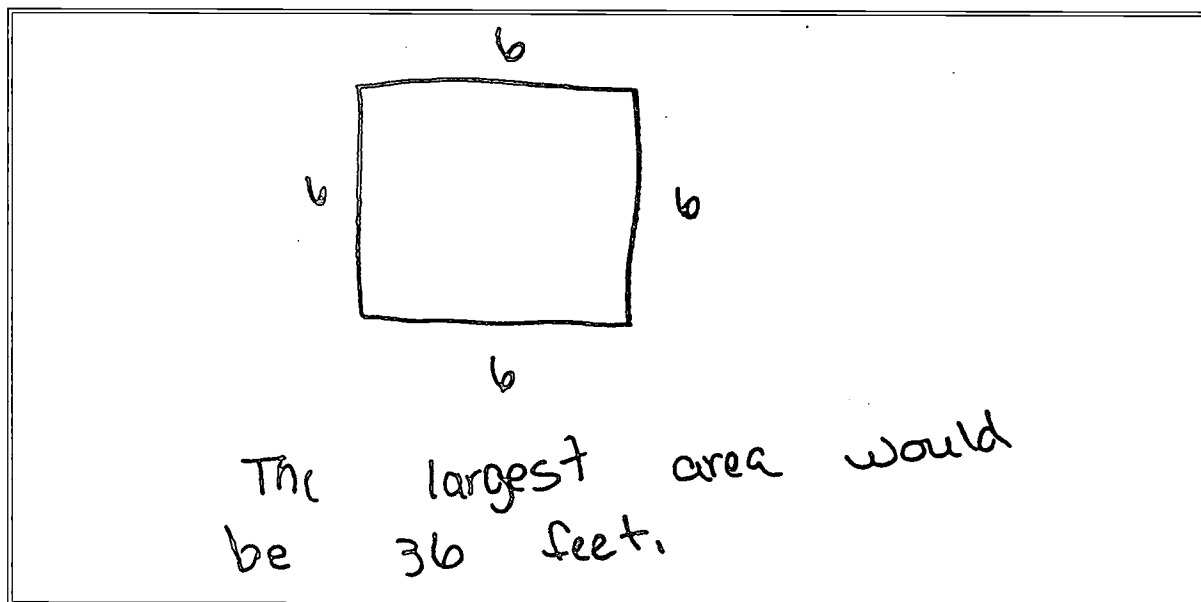 6
6 6
6
The largest area would
be 36 feet.